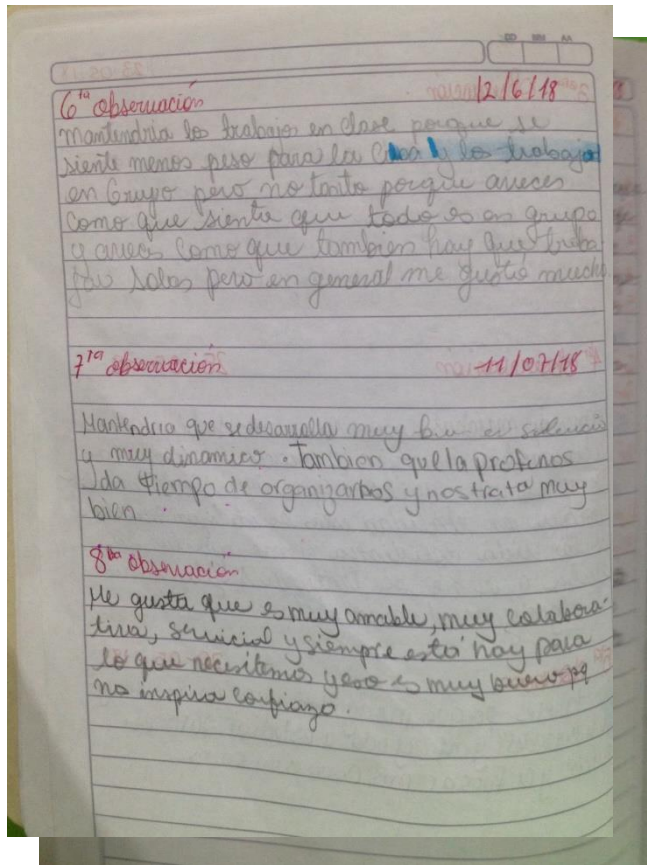 DD MM AA
6ta observación 12/6/18
mantendria los trabajos en clase porque se
siente menos peso para la y los trabajos
en Grupo pero no tanto porque aveces
como que siento que todo es en grupo
y aveces como que tambien hay que traba
jar solos pero en general me gustó mucho
7ta observación 11/07/18
Mantendria que se desarrolla muy bien
y muy dinamico. Tambien que la profe nos
da tiempo de organizarnos y nos trata muy
bien.
8va observación
Me gusta que es muy amable, muy colabora-
tiva, servicial y siempre está hay para
lo que necesitemos y eso es muy bueno pq
nos inspira confiaza.